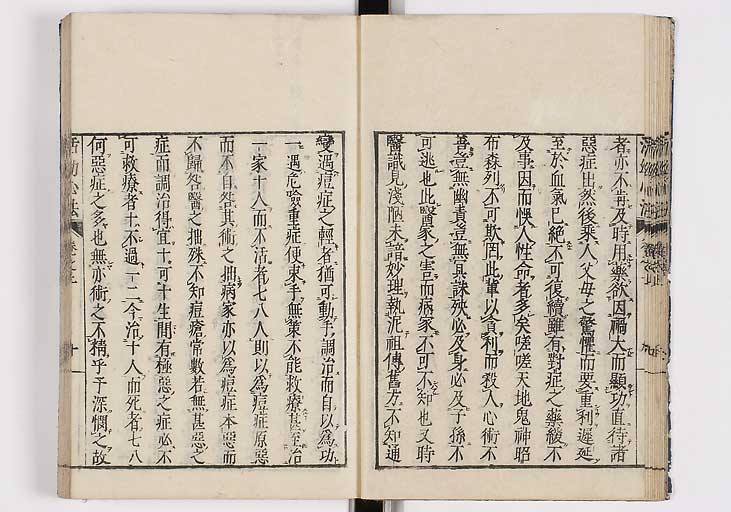 者亦不再及時用藥欲因禍大而顯功直待諸
惡症出然後乘人父母之驚懼而要重利遲延
至於血氣已絕不可復續雖有對症之藥緩不
及事因而悞人性命者多矣嗟嗟天地鬼神昭
布森列不可欺罔此輩以貪利而殺人心術不
善豈無幽責豈無冥誅殃必及身必及子孫不
可逃也此醫家之害而病家不可不知也又時
醫識見淺陋未諳妙理執泥祖傳舊方不知通
變過痘症之輕者猶可動手調治而自以為功
一遇危險重症便束手無策不能救療甚至治
一家十人而不活者七八人則以為痘症原惡
而不自咎其術之拙病家亦以為痘症本惡而
不歸咎醫之拙殊不知痘瘡常數若無甚惡之
症而調治得宜十可十生間有極惡之症必不
可救療者十不過一二今治十人而死者七八
何惡症之多也無亦術之不精乎予深憫之故
活幼心法
卷之
十